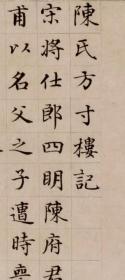 陳氏方寸樓記
宋將仕郎四明陳府君
甫以名父之子遭時喪